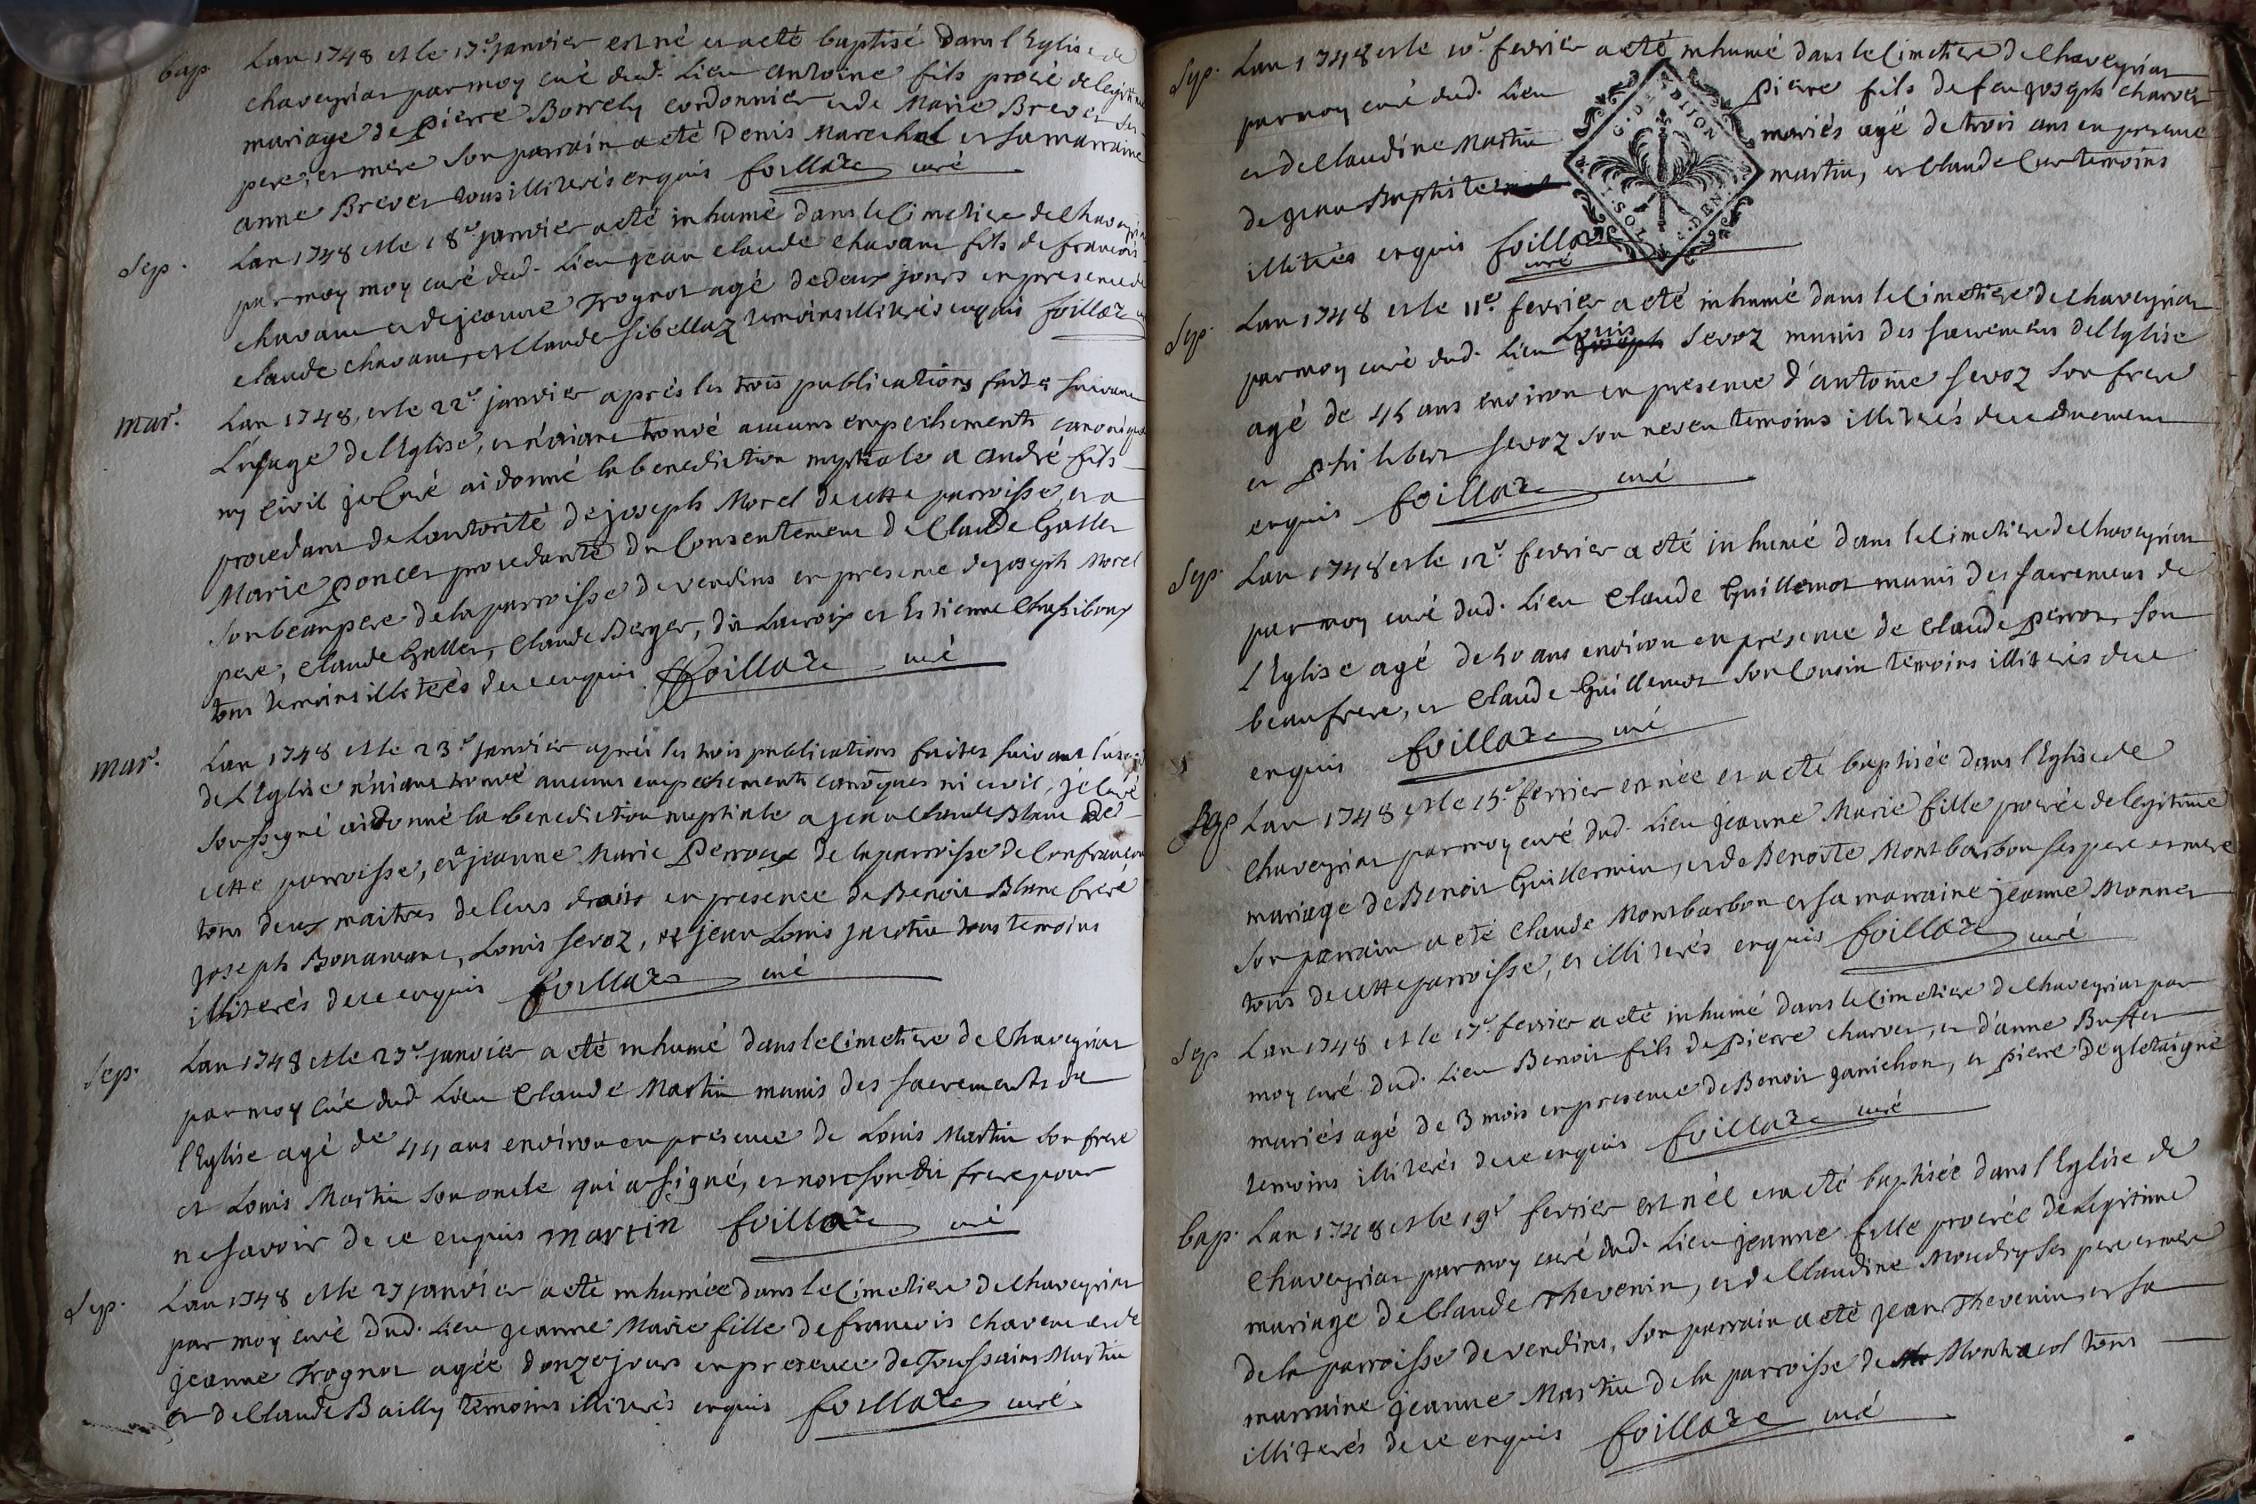 bap. Lan 1748 et le 17e janvier est né et a eté baptisé dans l'Eglise de
chaveyriat par moy curé dud. Lieu antoine fils procréé de legitime
mariage de pierre Borrely cordonnier et de Marie Brevet ses
pere, et mere son parrain a eté Denis Marechal et sa marraine
anne Brevet tous illiterés enquis foillaz curé
Sep. Lan 1748 et le 18e janvier a eté inhumé dans le Cimetiere de Chaveyriat
par moy moy curé dud. Lieu jean claude chavant fils de francois
chavant et de jeanne Trognot agé de deux jours en presence de
claude chavant, et Claude sibellaz temoins illiterés enquis foillaz
mar. Lan 1748, et le 22e janvier aprés les trois publications faites suivant
L'usage de l'Eglise, et n'aiant trouvé aucuns empechements canoniques
ny civil je Curé ai donné la benediction nuptiale a andré fils
procedant de Lautorité de joseph Morel de cette parroisse, et a
Marie poncet procedante du Consentement de Claude Gutter
son beaupere de la parroisse de vendins en presence de joseph Morel
pere, Claude Gutter, Claude Berger, dit Lacroix et Estienne
tous temoins illiterés de ce enquis foillaz curé
mar. Lan 1748 et le 23e janvier aprés les trois publications faites suivant l'usage
de L'Eglise n'aiant trouvé aucuns empechements canoques ni civil, je Curé
soussigné ai donné la benediction nuptiale a jean Claude Blanc de
cette parroisse, et a jeanne Marie Perroux de la parroisse de Confrancon
tous deux maitres de leurs droits en presence de Benoit Blanc frere
joseph Bonamant, Louis sevoz, et jean Louis jacotin tous temoins
illiterés de ce enquis foillaz curé
Sep. Lan 1748 et le 23e janvier a eté inhumé dans le Cimetiere de Chaveyriat
par moy Curé dud. Lieu Claude Martin munis des sacrements de
l'Eglise agé de 44 ans environ en presence de Louis Martin son frere
et Louis Martin son oncle qui a signé, et non son dit frere pour
ne savoir de ce enquis martin foillaz curé
Sep. Lan 1748 et le 27 janvier a eté inhumée dans le Cimetiere de Chaveyriat
par moy curé dud. Lieu jeanne Marie fille de francois chavant et de
jeanne Trognot agée d'onze jours en presence de Toussaint Martin
et de Claude Bailly temoins illiterés enquis foillaz curé.
Sep. Lan 1748 et le 10e. fevrier a eté inhumé dans le Cimetiere de Chaveyriat
par moy curé dud. Lieu pierre fils de feu joseph charvet
et de Claudine Martin mariés agé de trois ans en presence
de jean Baptiste martin, et Claude Cur temoins
illiterés enquis foillaz
curé
G. DE DIJON
Sep. Lan 1748 et le 11e. fevrier a eté inhumé dans le Cimetiere de Chaveyriat
par moy curé dud. Lieu Louis sevoz munis des sacremens de l'Eglise
agé de 45 ans environ en presence d'antoine sevoz son frere
et philibert sevoz son neveu temoins illiterés de ce duement
enquis foillaz curé
Sep. Lan 1748 et le 12e. fevrier a eté inhumé dans le Cimetiere de Chaveyriat
par moy curé dud. Lieu Claude Guillemot munis des sacremens de
l'Eglise agé de 50 ans environ en presence de Claude perron, son
beaufrere, et Claude Guillemot son Cousin temoins illiterés de ce
enquis foillaz curé
Bap Lan 1748, et le 15e. fevrier est née et a eté baptisée dans l'Eglise de
Chaveyriat par moy curé dud. Lieu jeanne Marie fille procréé de legitime
mariage de Benoit Guillermin, et de Benoite Montbarbon ses pere et mere
son parrain a eté Claude Montbarbon et sa marraine jeanne Monnet
tous de cette parroisse, et illiterés enquis foillaz curé
Sep Lan 1748 et le 17e. fevrier a eté inhumé dans le Cimetiere de Chaveyriat par
moy curé dud. Lieu Benoit fils de Pierre charvet, et d'anne Buffet
mariés agé de 3 mois en presence de Benoit janichon, et pierre
temoins illiterés de ce enquis foillaz curé
bap. Lan 1748 et le 19e fevrier est née et a eté baptisée dans l'Eglise de
Chaveyriat par moy curé dud. Lieu jeanne fille procréé de legitime
mariage de Claude Thevenin, et de Claudine Moudry ses pere et mere
de la parroisse de vendins, son parrain a eté jean Thevenin, et sa
marraine jeanne Martin de la parroisse de Montracol tous
illiterés de ce enquis foillaz curé